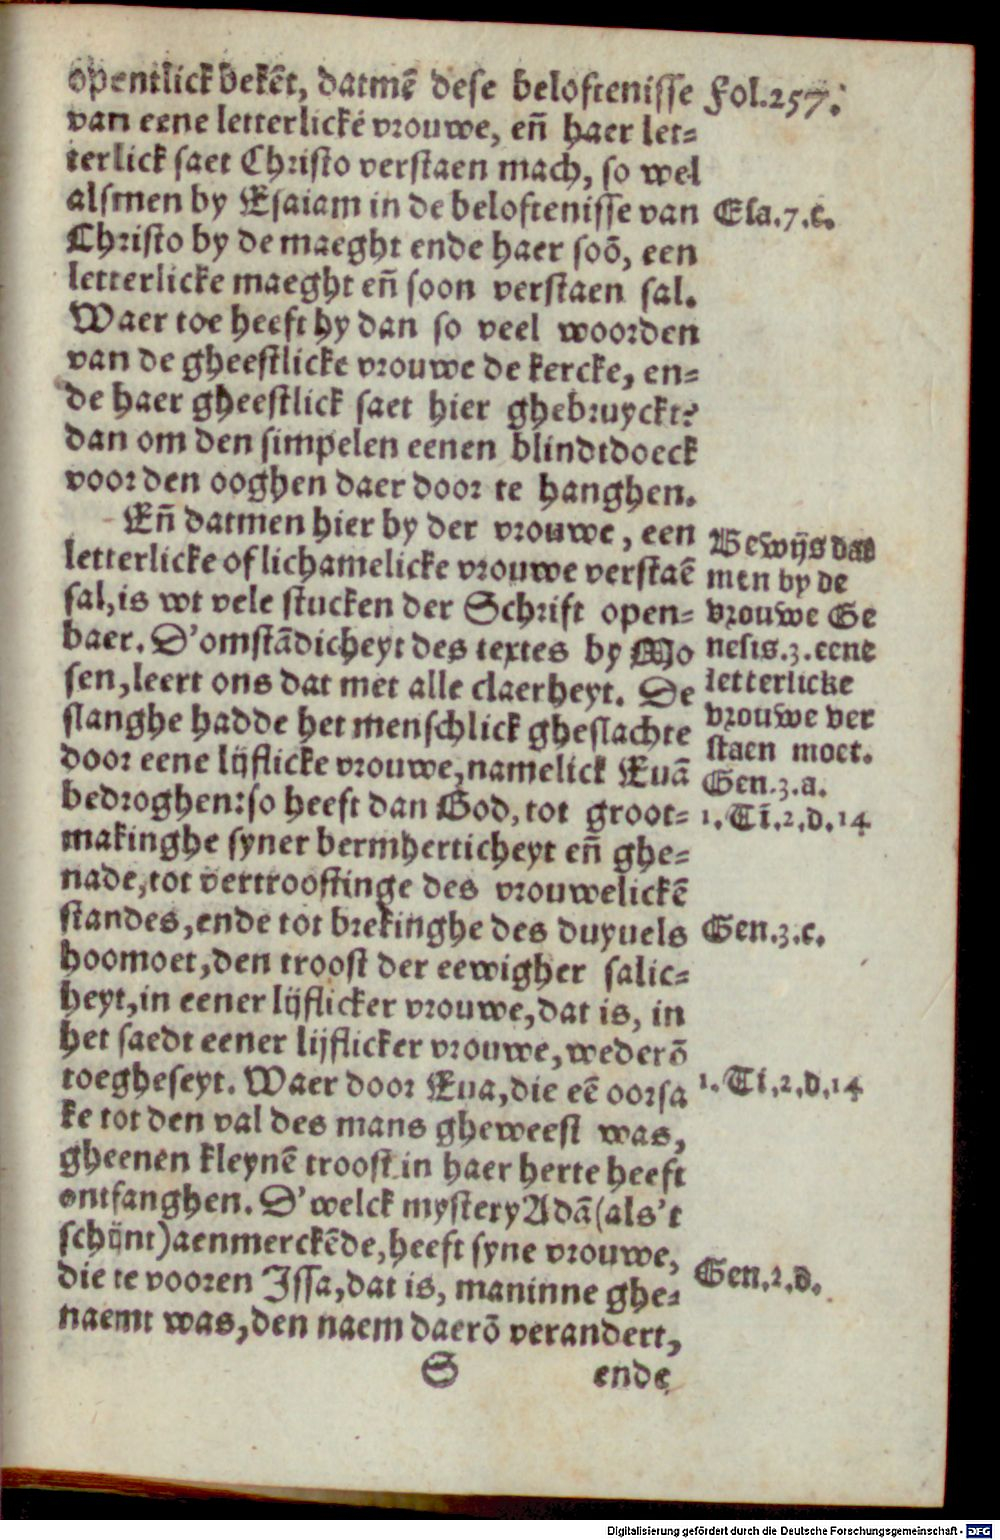 opentlick bekēt, datmē dese beloftenisse
Fol.257.
van eene letterlické vrouwe, eñ haer let-
terlick saet Christo verstaen mach, so wel
alsmen by Esaiam in de beloftenisse van
Esa.7.c.
Christo by de maeght ende haer soō, een
letterlicke maeght eñ soon verstaen sal.
Waer toe heeft hy dan so veel woorden
van de gheestlicke vrouwe de kercke, en-
de haer gheestlick saet hier ghebruyckt?
dan om den simpelen eenen blindtdoeck
voor den ooghen daer door te hanghen.
Eñ datmen hier by der vrouwe, een
letterlicke of lichamelicke vrouwe verstaē
sal, is wt vele stucken der Schrift open-
baer. D'omstādicheyt des textes by Mo
sen, leert ons dat met alle claerheyt. De
slanghe hadde het menschlick gheslachte
door eene lijflicke vrouwe, namelick Euā
bedroghen: so heeft dan God, tot groot-
makinghe syner bermherticheyt eñ ghe-
nade, tot vertroostinge des vrouwelickē
standes, ende tot brekinghe des duyuels
hoomoet, den troost der eewigher salic-
heyt, in eener lijflicker vrouwe, dat is, in
het saedt eener lijflicker vrouwe, wederō
toegheseyt. Waer door Eua, die eē oorsa
ke tot den val des mans gheweest was,
gheenen kleynē troost in haer herte heeft
ontfanghen. D'welck mystery Adā (als't
schijnt) aenmerckēde, heeft syne vrouwe,
die te vooren Issa, dat is, maninne ghe-
naemt was, den naem daerō verandert,
Bewijs dat
men by de
vrouwe Ge
nesis.3. eene
letterlicke
vrouwe ver
staen moet.
Gen.3.a.
1.Ti.2.d.14
Gen.3.c.
1.Ti.2.d.14
Gen.2.d.
S
ende
Digitalisierung gefördert durch die Deutsche Forschungsgemeinschaft - DFG